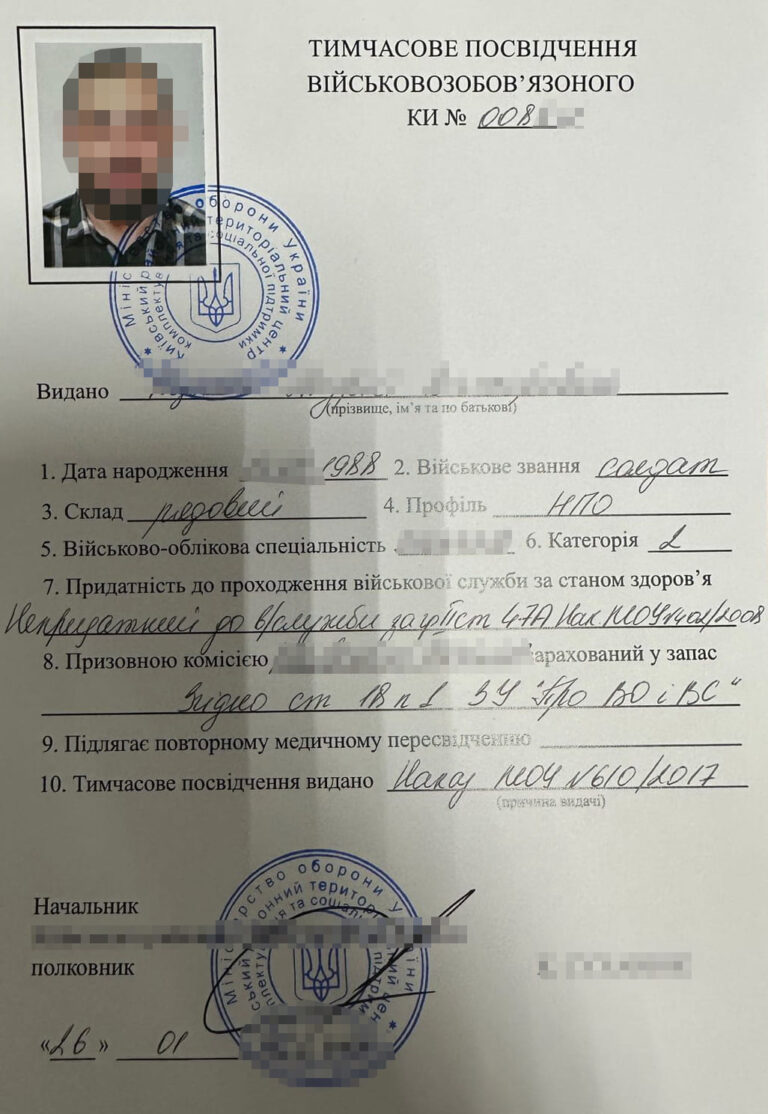 ТИМЧАСОВЕ ПОСВІДЧЕННЯ
ВІЙСЬКОВОЗОБОВ’ЯЗОНОГО
КИ № 008
Міністерство оборони України
територіальний центр
комплектування та соціальної підтримки
Видано
(прізвище, ім’я та по батькові)
1. Дата народження 1988 2. Військове звання солдат
3. Склад рядовий 4. Профіль НПО
5. Військово-облікова спеціальність 6. Категорія 2
7. Придатність до проходження військової служби за станом здоров’я
Непридатний до в/служби за гр II ст 47А Нак МОУ №402/2008
8. Призовною комісією зарахований у запас
Згідно ст 18 п 1 ЗУ "Про ВО і ВС"
9. Підлягає повторному медичному пересвідченню
10. Тимчасове посвідчення видано Наказ МОУ №610/2017
(причина видачі)
Начальник
полковник
«26» 01
Міністерство оборони України